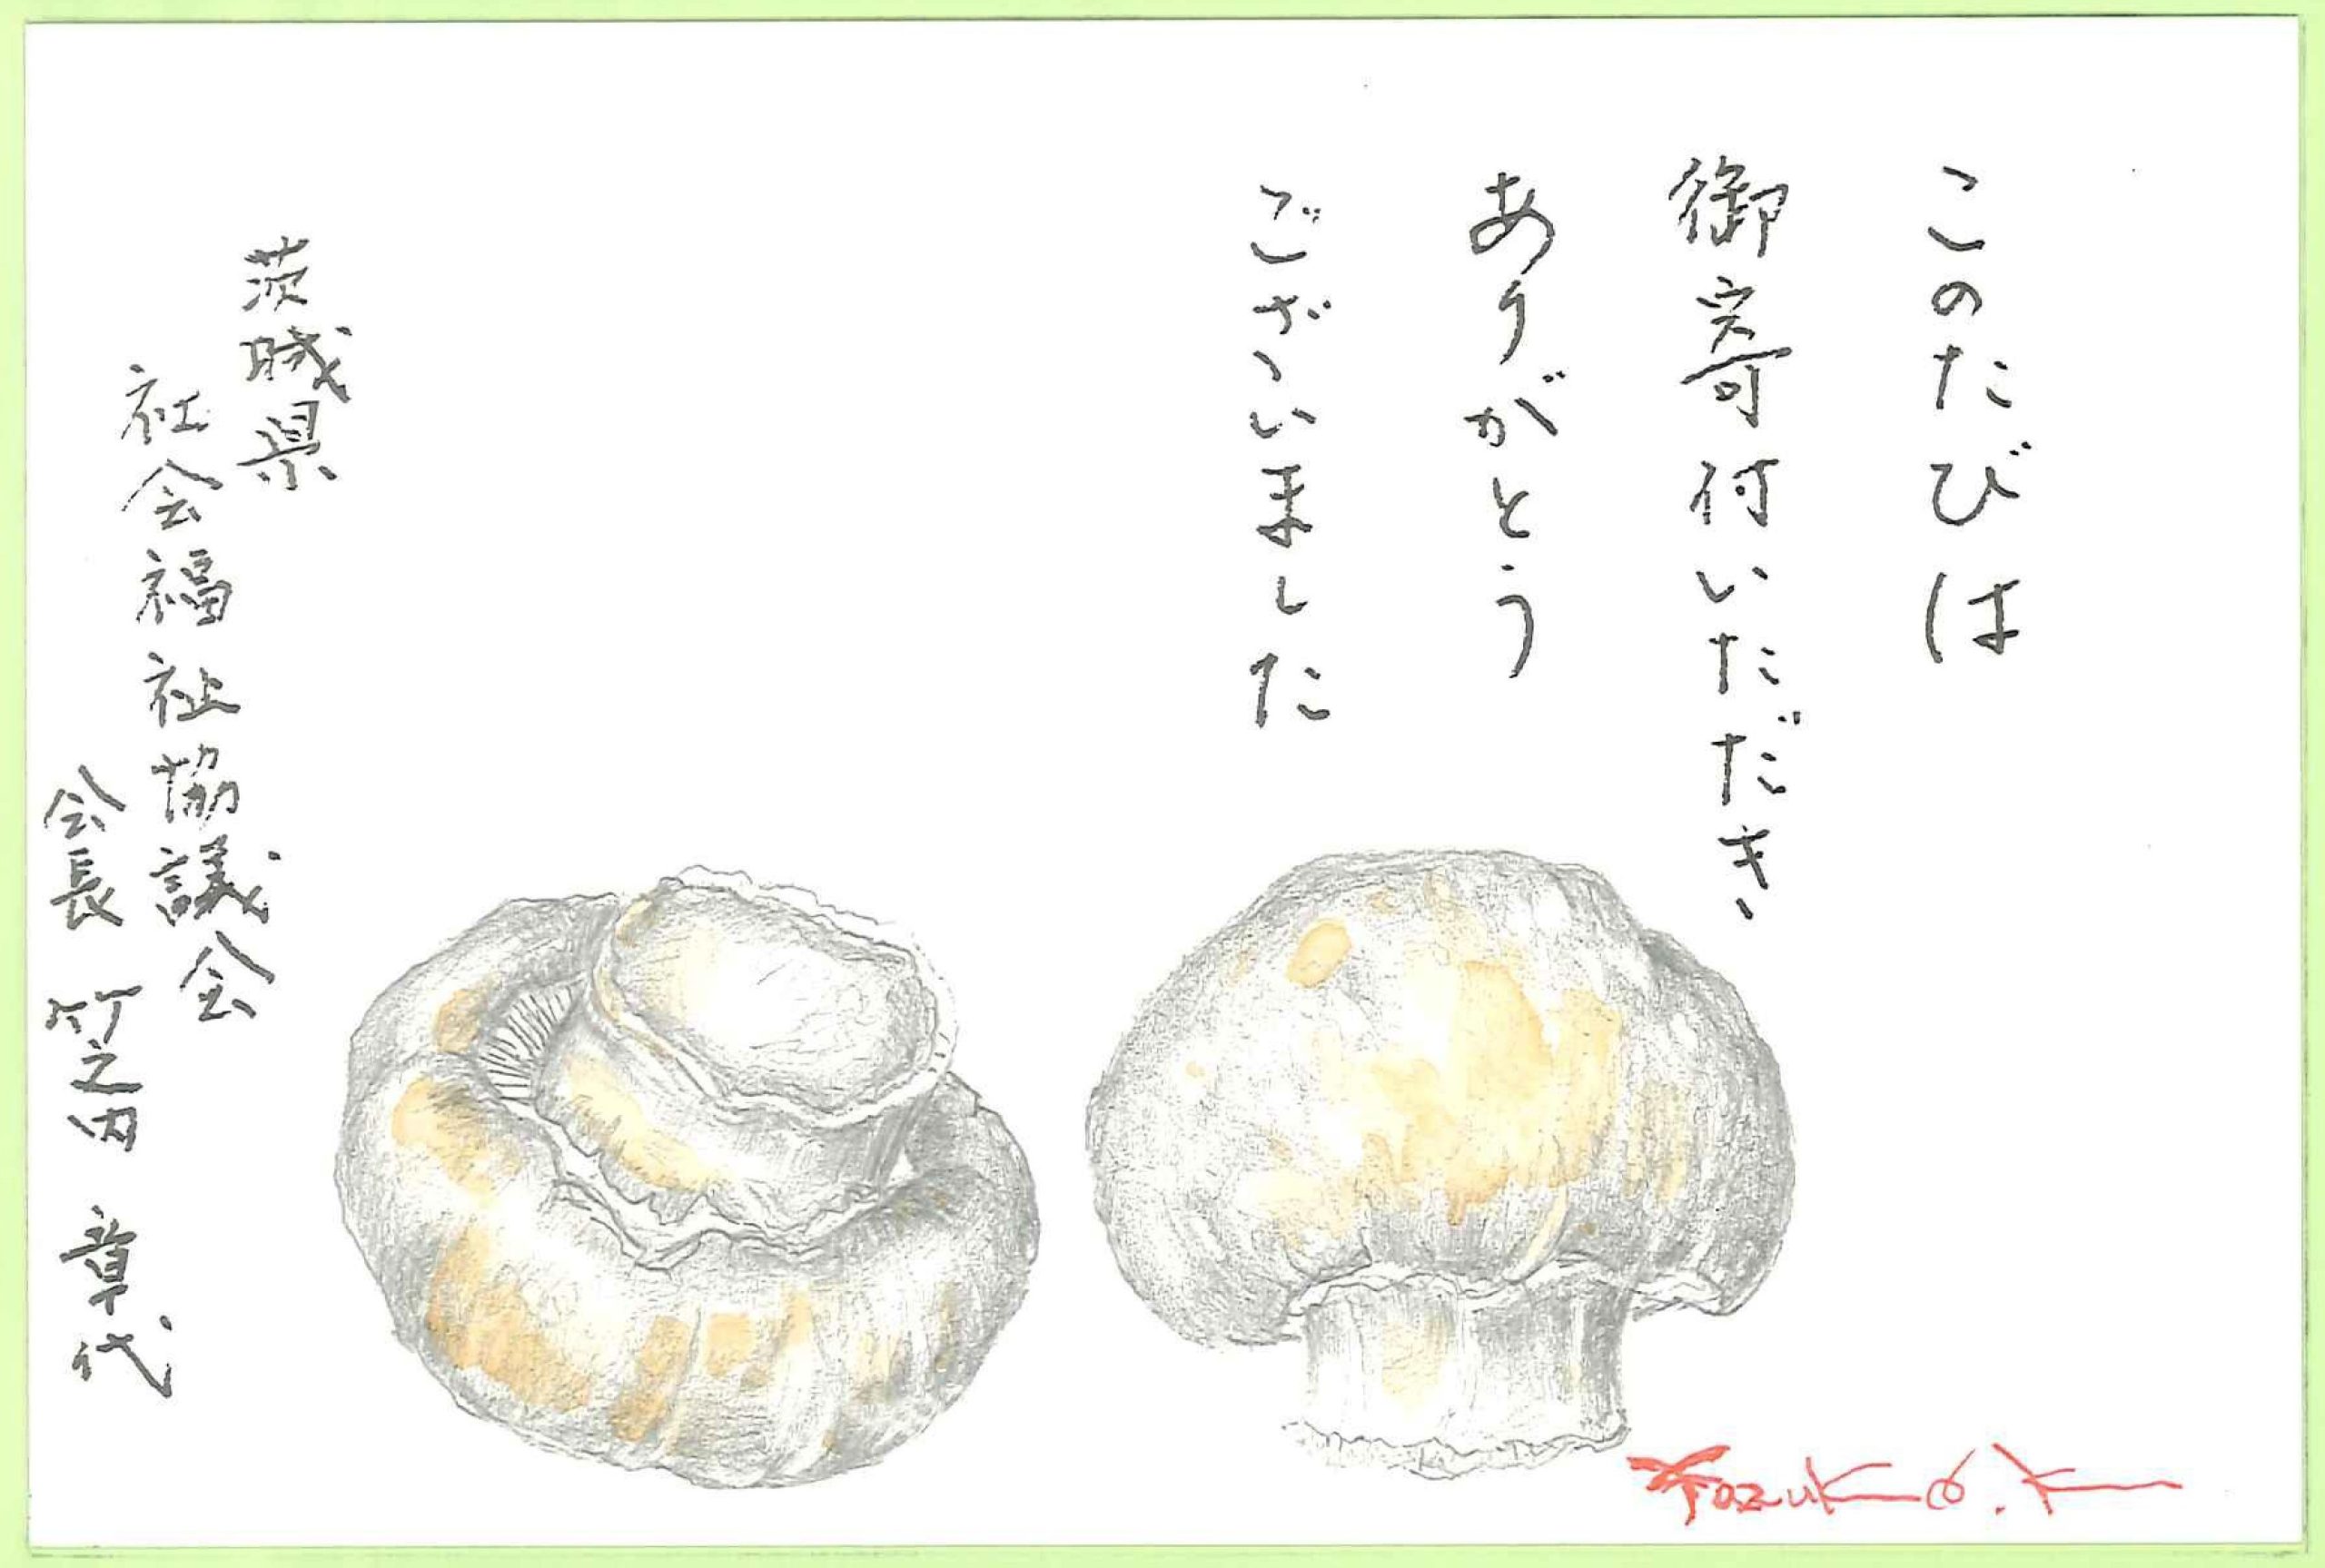 このたびは
御寄付いただき
ありがとう
ございました
茨城県
社会福祉協議会
会長 竹之内 章代